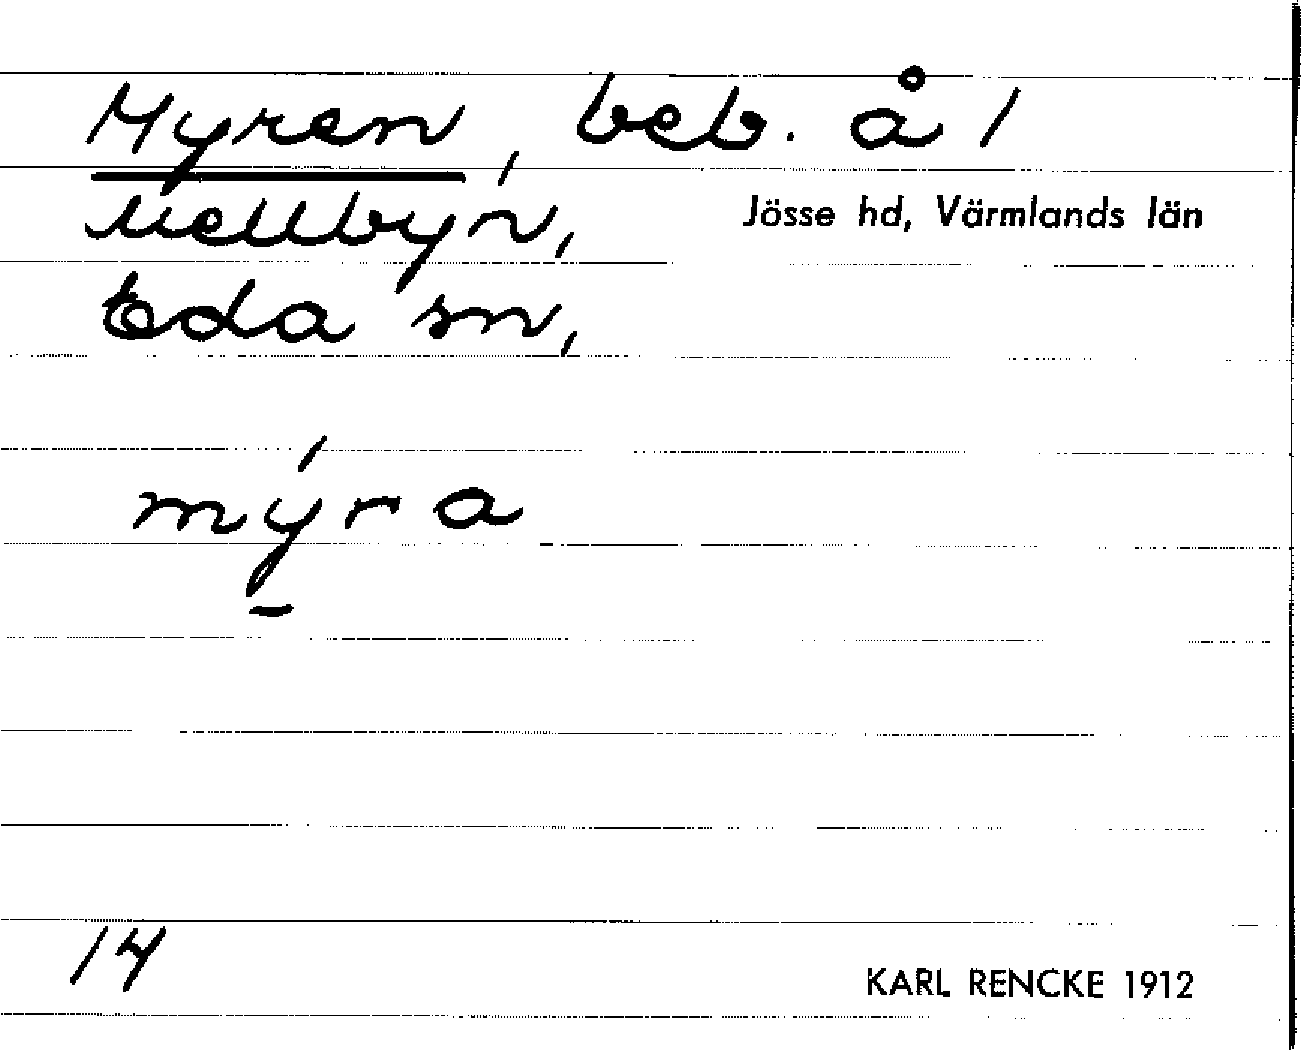 Myren, beb. å 1
Mellbyn,
Jösse hd, Värmlands län
Eda sn,
mýra
14
KARL RENCKE 1912